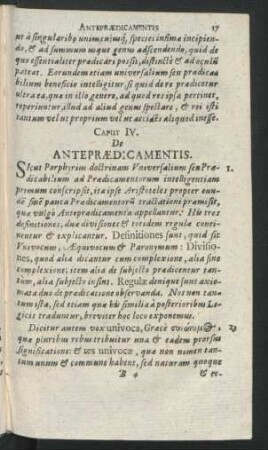 ANTEPRÆDICAMENTIS 17
ut à singularib9 unius cujusq, species infimæ incipiendo, & ad summum usque genus adscendendo, quid de
quo essentialiter prædicari possit, distinctè & ad oculũ
pateat. Eorundem etiam universalium seu prædicabilium beneficio intelligitur, si quid de re prædicetur
ultra ea, quæ in illo genere, ad quod res ipsa pertinet,
reperiuntur, illud ad aliud genus spectare, & rei isti
tantum vel ut proprium vel ut accidẽs aliquod inesse.
CAPUT IV.
De
ANTEPRÆDICAMENTIS.
SIcut Porphyrius doctrinam Vniversalium seu Prædicabilium ad Prædicamentorum intelligentiam 1.
primum conscripsit, ita ipse Aristoteles propter eundẽ finẽ pauca Prædicamentorũ tractationi præmisit,
quæ vulgò Anteprædicamenta appellantur. Hic tres
definitiones, duæ divisiones & totidem regulæ continentur & explicantur. Definitiones sunt, quid sit
Vnivocum, Æquivocum & Paronymum: Divisiones, quod alia dicantur cum complexione, alia sine
complexione; item alia de subjecto prædicentur tantum, alia subjecto insint. Regulæ denique sunt axiomata duo de prædicatione observanda. Nos non tantum ista, sed etiam quæ his similia à posterioribus Logicis traduntur, breviter hoc loco exponemus.
Dicitur autem vox univoca, Græcè συνώνυμ@, 2.
quæ pluribus rebus tribuitur una & eadem prorsus
significatione: & res univocæ, quæ non nomen tantum unum & commune habent, sed naturam quoque
B 4 & es-